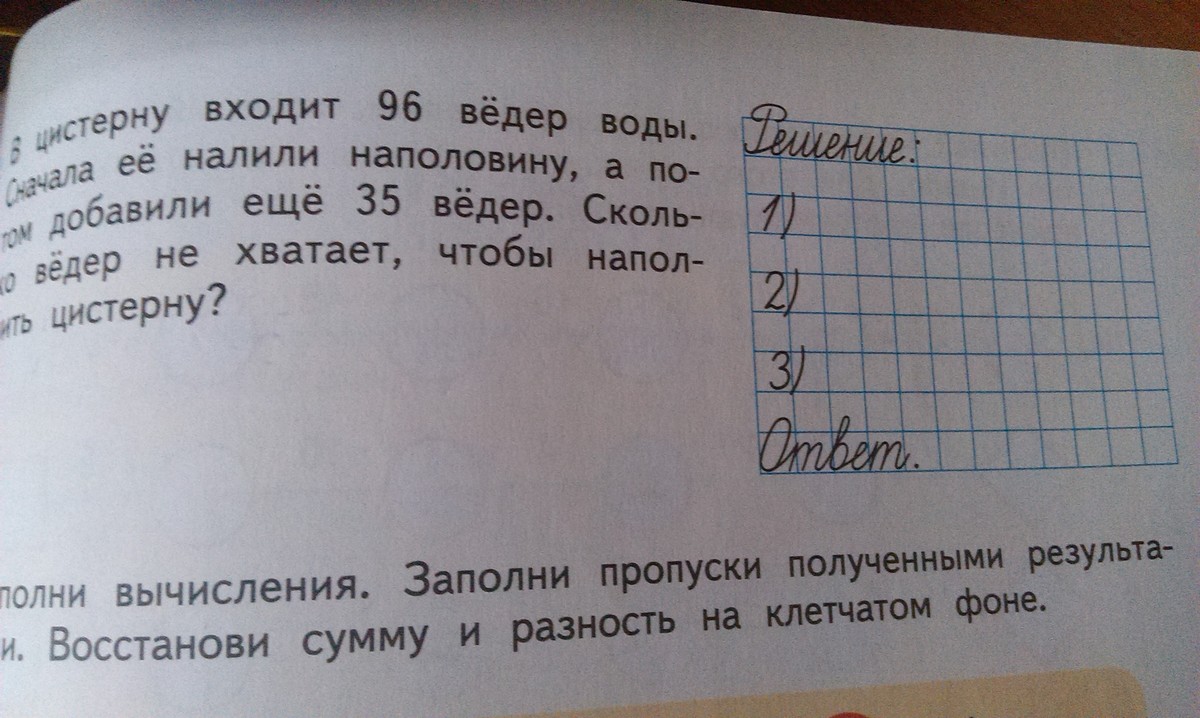 В цистерну входит 96 вёдер воды.
Сначала её налили наполовину, а по-
том добавили ещё 35 вёдер. Сколь-
ко вёдер не хватает, чтобы напол-
ить цистерну?
Решение:
1)
2)
3)
Ответ.
полни вычисления. Заполни пропуски полученными результа-
и. Восстанови сумму и разность на клетчатом фоне.